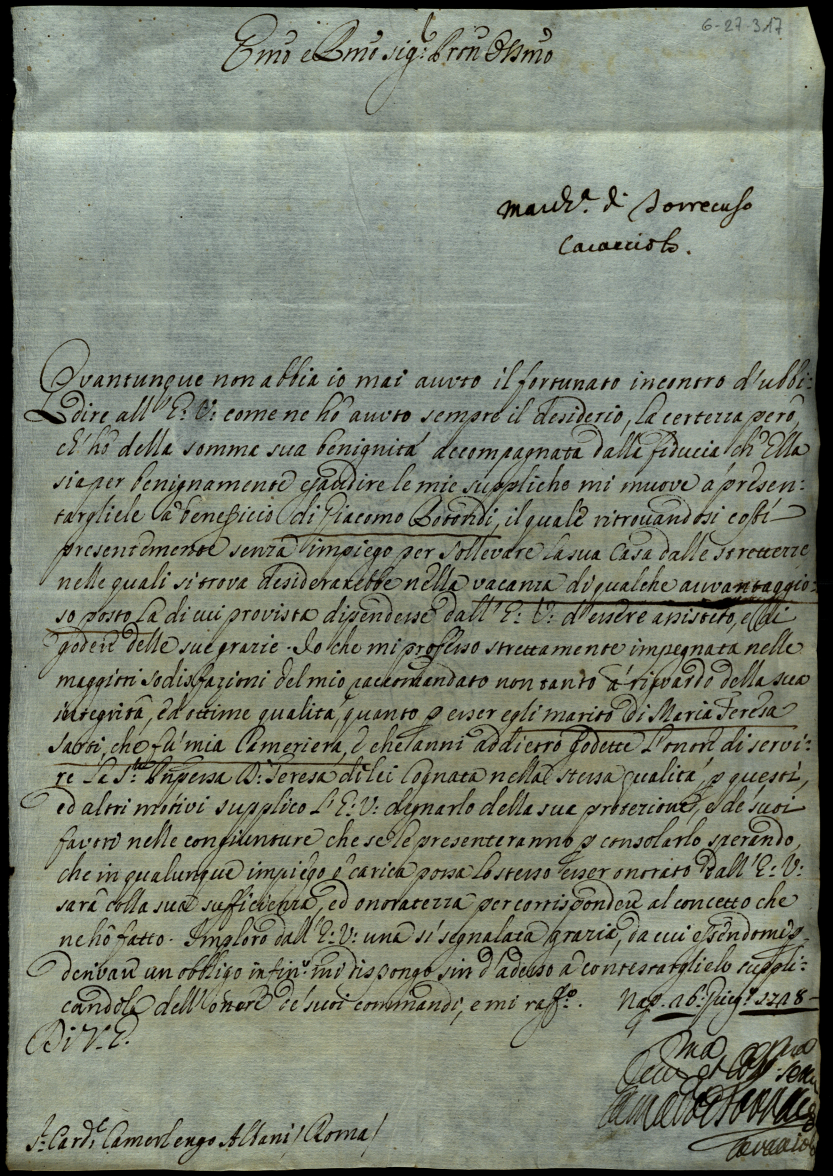 6-27-317
Emo e Rmo sig.r Pron Ossmo
March.a di Torrecuso
Caracciolo.
Quantunque non abbia io mai auuto il fortunato incontro d'ubbi:
dire all'E: V: come ne hò auuto sempre il desiderio, la certezza però,
ch'hò della somma sua benignità accompagnata dalla fiducia ch'Ella
sia per benignamente esaudire le mie suppliche mi muove à presen:
targliele à beneficio di Giacomo Rotondi, il quale ritrouandosi costì
presentemente senza impiego per sollevare la sua Casa dalle strettezze
nelle quali si trova desiderarebbe nella vacanza di qualche auuantaggio:
so posto la di cui provista dipendesse dall'E: V: d'essere assistito, e di
godere delle sue grazie. Io che mi professo strettamente impegnata nelle
maggiori sodisfazioni del mio raccomandato non tanto à riguardo della sua
integrità, ed ottime qualità, quanto p esser egli marito di Maria Teresa
Sarti, che fù mia Cameriera, e che anni addietro godette l'onore di servi:
re la S.ra Prĩpessa D: Teresa di lei Cognata nella stessa qualità, p questi,
ed altri motivi supplico l'E: V: degnarlo della sua protezione, e de' suoi
favori nelle congiunture che se le presenteranno p consolarlo, sperando,
che in qualunque impiego e carica possa lo stesso esser onorato dall'E: V:
sarà colla sua sufficienza, ed onoratezza per corrispondere al concetto che
ne hò fatto. Imploro dall'E: V: una sì segnalata grazia, da cui essendomi p
derivare un obbligo infin.o mi dispongo sin d'adesso à contestarglielo suppli:
candola dell'onore de' suoi commandi, e mi raff.o. Nap. 16: Giug.o 1748
Di V. E.
S.r Card.e Camerlengo Albani / Roma /
Caracciolo